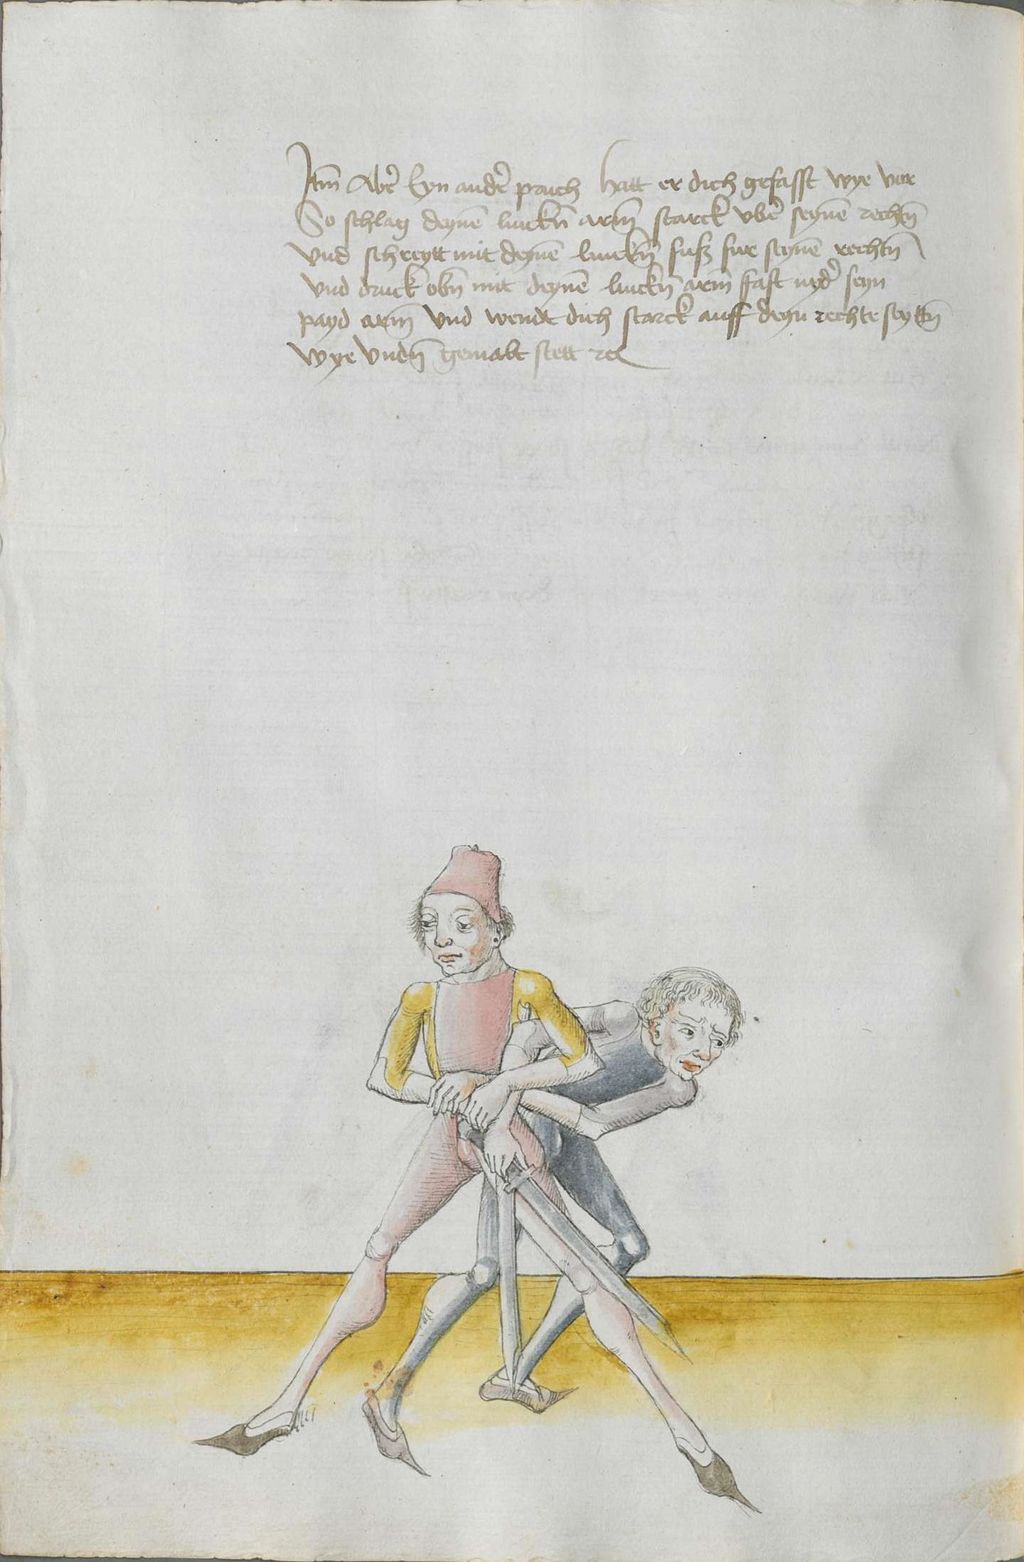 Itm Abr̄ Eyn andr̄ pruch hatt er dich gefasst wye vor
So schlag deynē linckñ arm̄ starck vbr̄ seynē rechtñ
vnd schreytt mit deynē linckñ fuß fur seynē rechtñ
vnd druck obñ mit deynē linckñ arm̄ fast nydr̄ seyn
payd arm̄ vnd wendt dich starck auff deyn rechte seyttñ
wye vndñ gemalt stett ꝛc